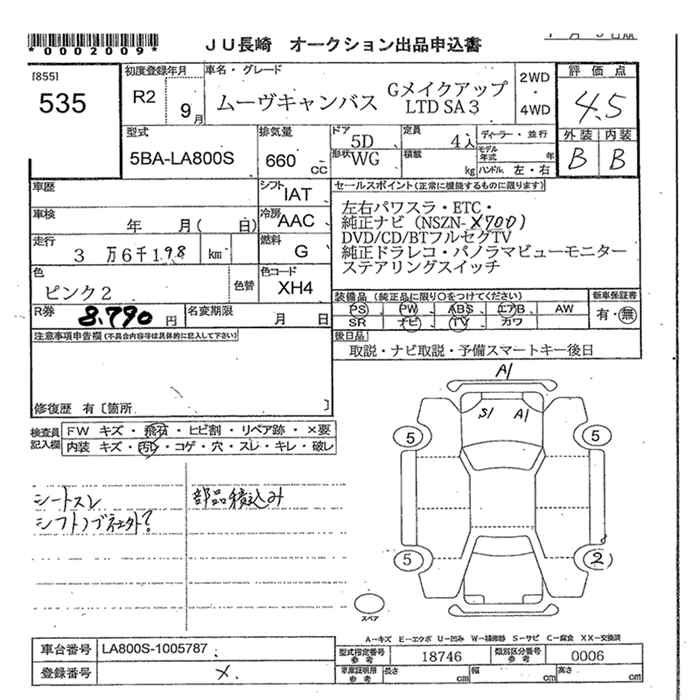 *0002009*
JU長崎 オークション出品申込書
[855]
535
初度登録年月
R2 9月
車名・グレード
ムーヴキャンバス Gメイクアップ
LTD SA3
2WD
・
4WD
評価点
4.5
外装 内装
B B
型式
5BA-LA800S
排気量
660 cc
ドア
5D
形状
WG
定員
4人
積載
kg
ディーラー・並行
モデル年式 年
ハンドル 左・右
車歴
シフト IAT
冷房 AAC
車検 年 月( 日)
走行 3万6千198 km
燃料 G
色
ピンク2
色替
色コード
XH4
セールスポイント(正常に機能するものに限ります)
左右パワスラ・ETC・
純正ナビ(NSZN-X700)
DVD/CD/BTフルセグTV
純正ドラレコ・パノラマビューモニター
ステアリングスイッチ
R券 8,790円
名変期限 月 日
装備品(純正品に限り○をつけてください)
PS PW ABS エアB AW
SR ナビ TV カワ
新車保証書
有・無
後日品
取説・ナビ取説・予備スマートキー後日
注意事項申告欄(不具合内容等は具体的に記入して下さい)
修復歴 有〔箇所 〕
検査員
記入欄
FW キズ・飛石・ヒビ割・リペア跡・×要
内装 キズ・汚れ・コゲ・穴・スレ・キレ・破レ
シートスレ
シフトノブ
部品積込み
A1
S1 A1
5 5
5 2
スペア
A-キズ E-エクボ U-凹み W-補修跡 S-サビ C-腐食 XX-交換済
車台番号 LA800S-1005787
登録番号 ×
型式指定番号
参考
18746
類別区分番号
参考
0006
車庫証明用
参考
長さ cm 幅 cm 高さ cm